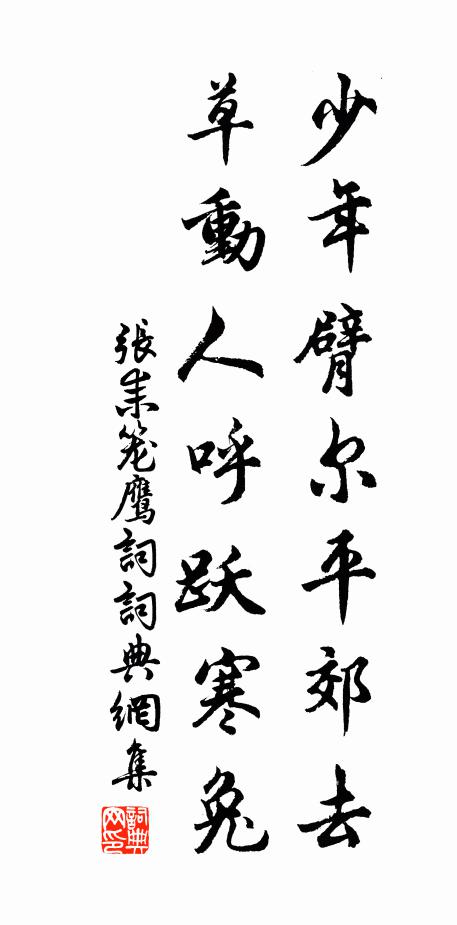 少年臂尔平郊去
草動人呼跃寒兔
張耒笼鹰詞詞典網集
詞典网印